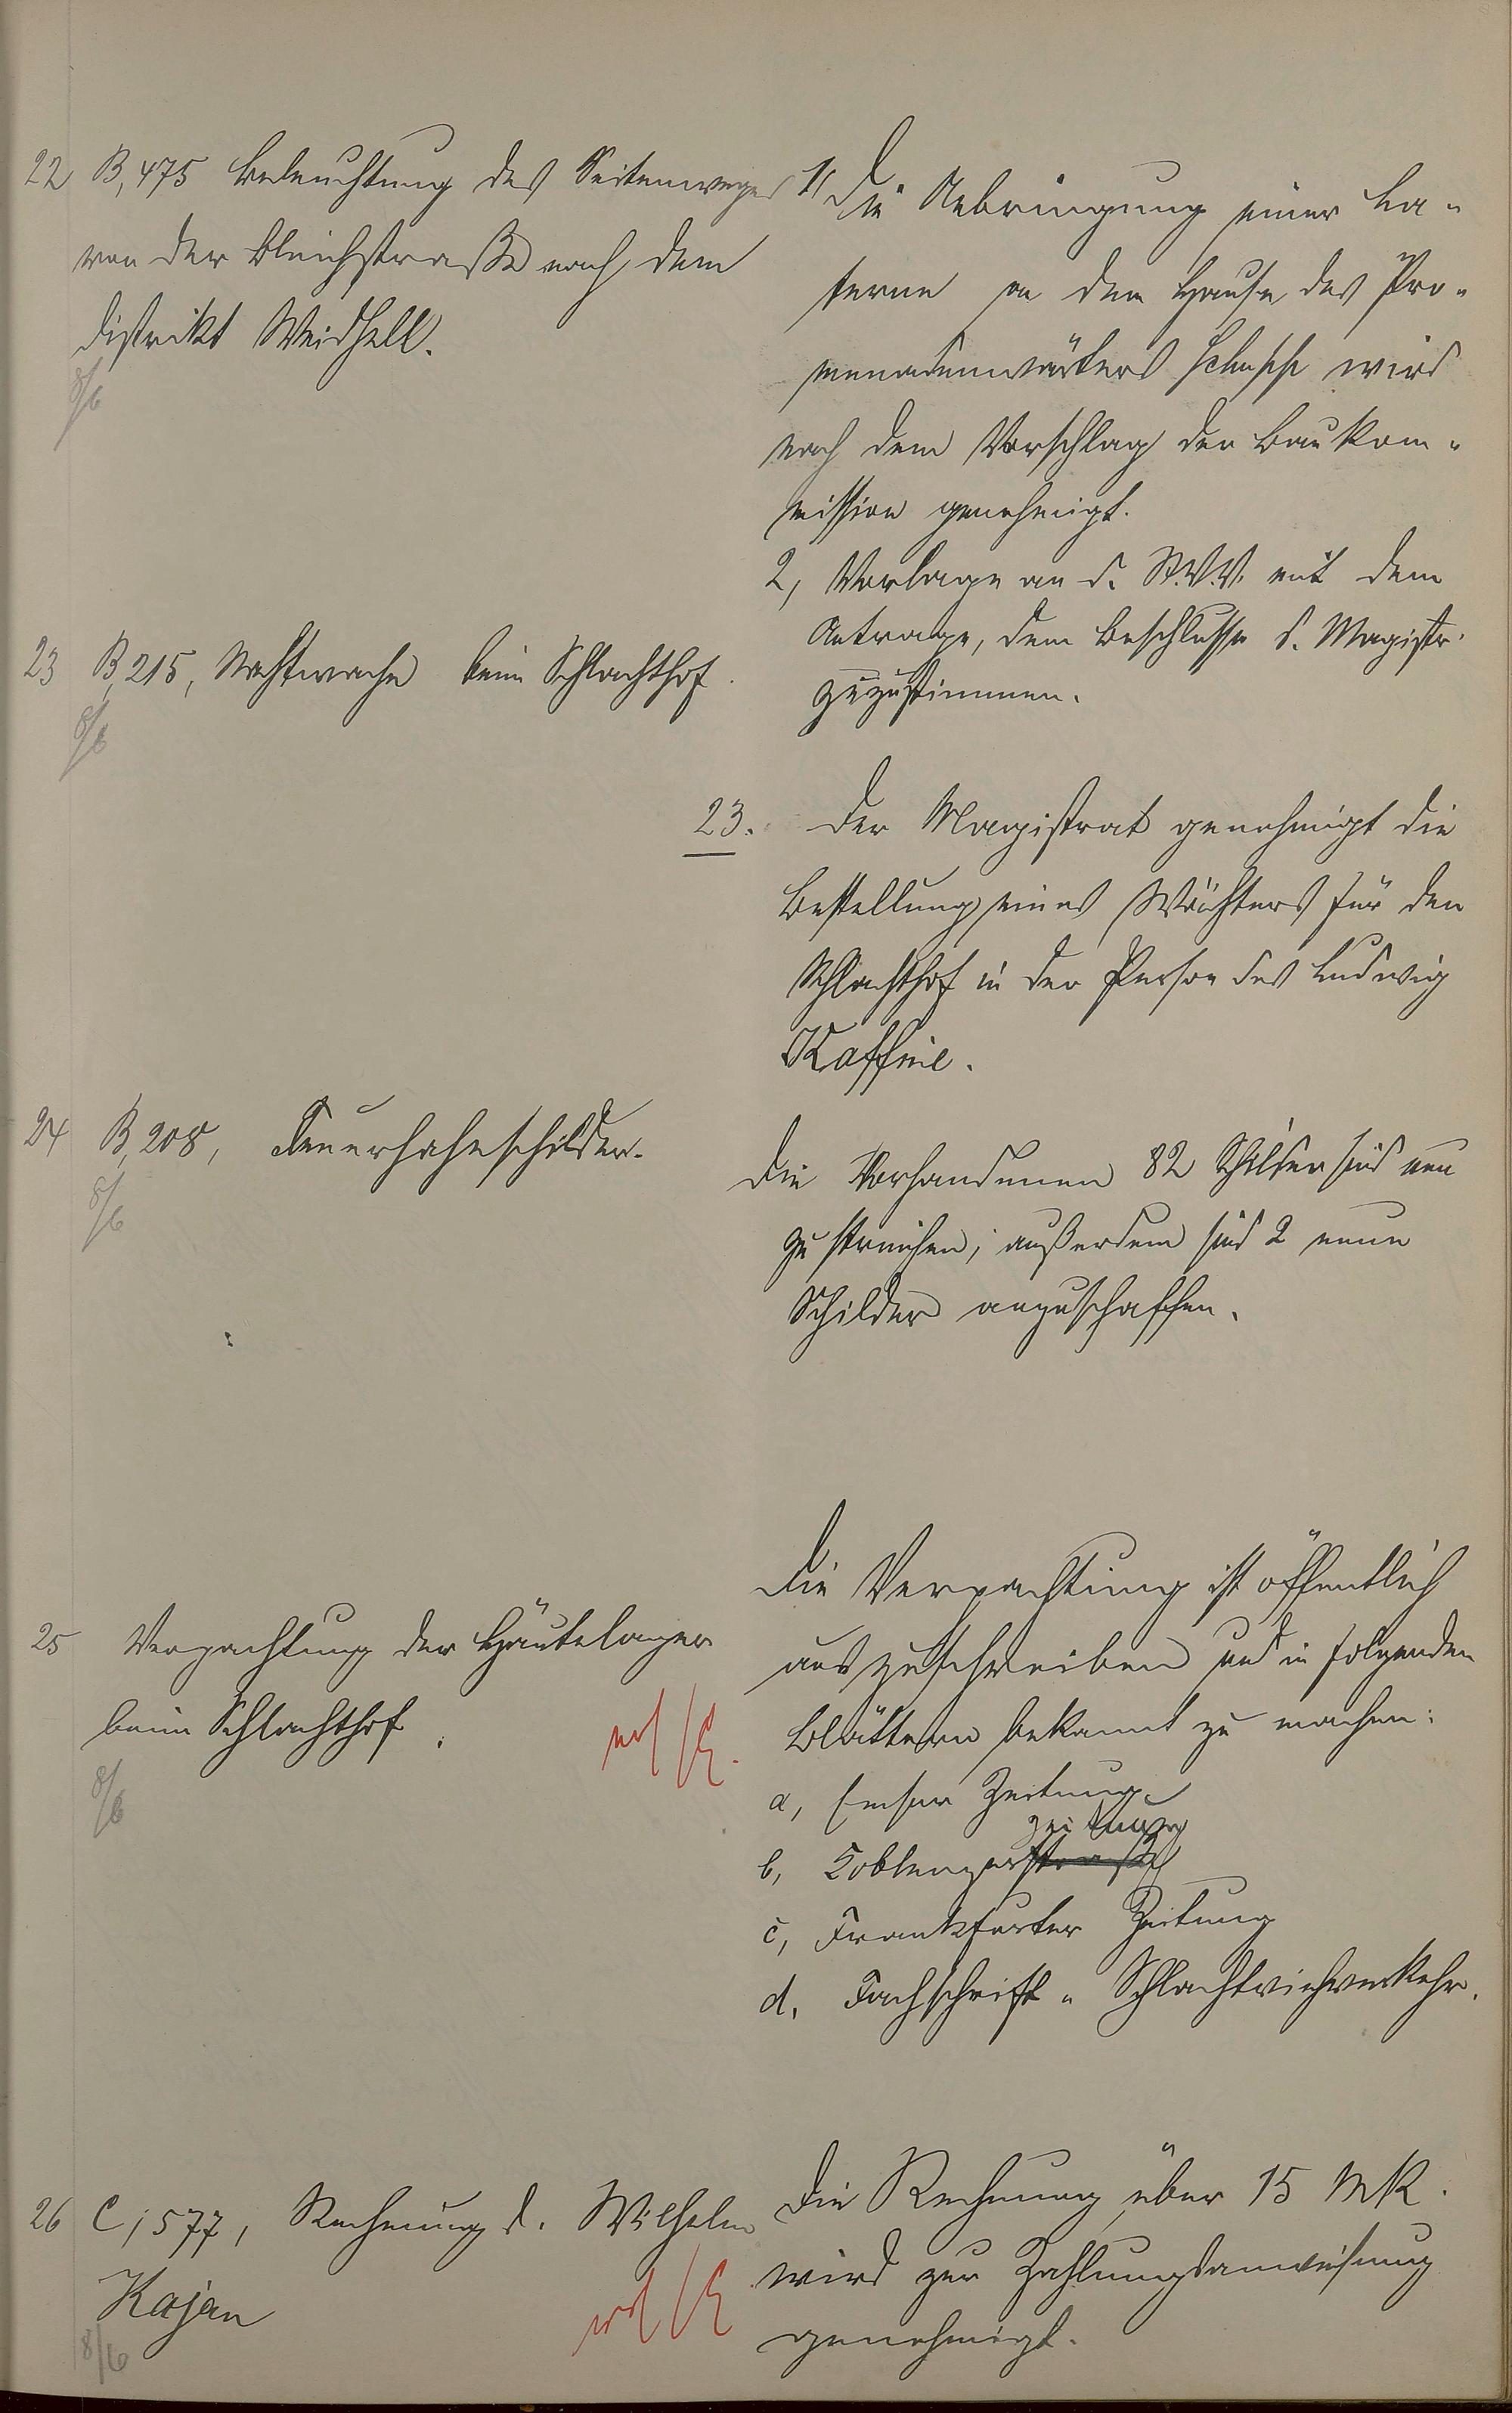 22 B, 475 Beleuchtung des Seitenweges
von der Bleichstraße nach dem
Distrikt Weidhell.
8/6
1, Die Anbringung einer La-
terne an dem Hause des Pro-
menadenwärters wird
nach dem Vorschlag der Baukom-
mission genehmigt.
2, Vorlage an d. St.V.V. mit dem
Antrage, dem Beschlusse d. Magistr.
zuzustimmen.
23 B, 215, Nachtwache beim Schlachthof.
8/6
23. Der Magistrat genehmigt die
Bestellung eines Wächters für den
Schlachthof in der Person des Ludwig
Kaffine.
24 B, 208, Feuerhahnschilder.
8/6
Die Vorhandenen 82 Schilder sind neu
zu streichen, außerdem sind 2 neue
Schilder anzuschaffen.
25 Verpachtung der Häutelager
beim Schlachthof.
8/6
Die Verpachtung ist öffentlich
auszuschreiben und in folgenden
Blättern bekannt zu machen:
a, Emser Zeitung
zeitung
b, Coblenzerstraße
c, Frankfurter Zeitung
d, Fachschrift „ Schlachtviehverkehr.
26 C, 577, Rechnung d. Wilhelm
Kajan
8/6
Die Rechnung über 15 Mk.
wird zur Zahlungsanweisung
genehmigt.